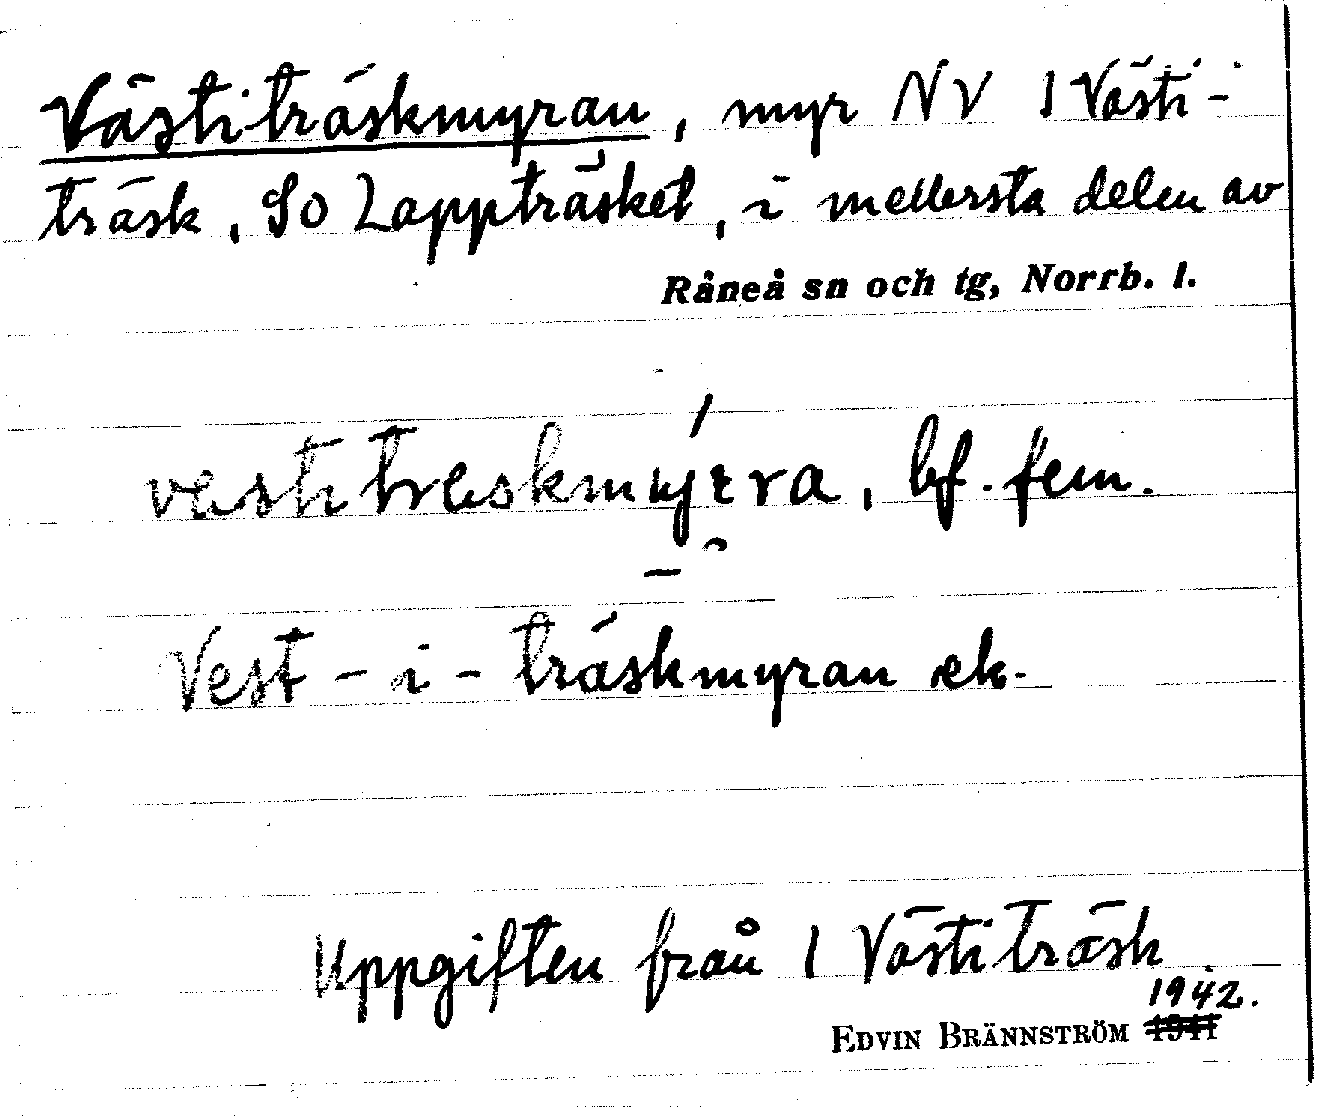 Västiträskmyran, myr NV 1 Västi-
träsk, So Lappträsket, i mellersta delen av
Råneå sn och tg, Norrb. l.
bf. fem.
Vest-i-träskmyran ek.
Uppgiften från 1 Västiträsk
1942.
EDVIN BRÄNNSTRÖM 1941